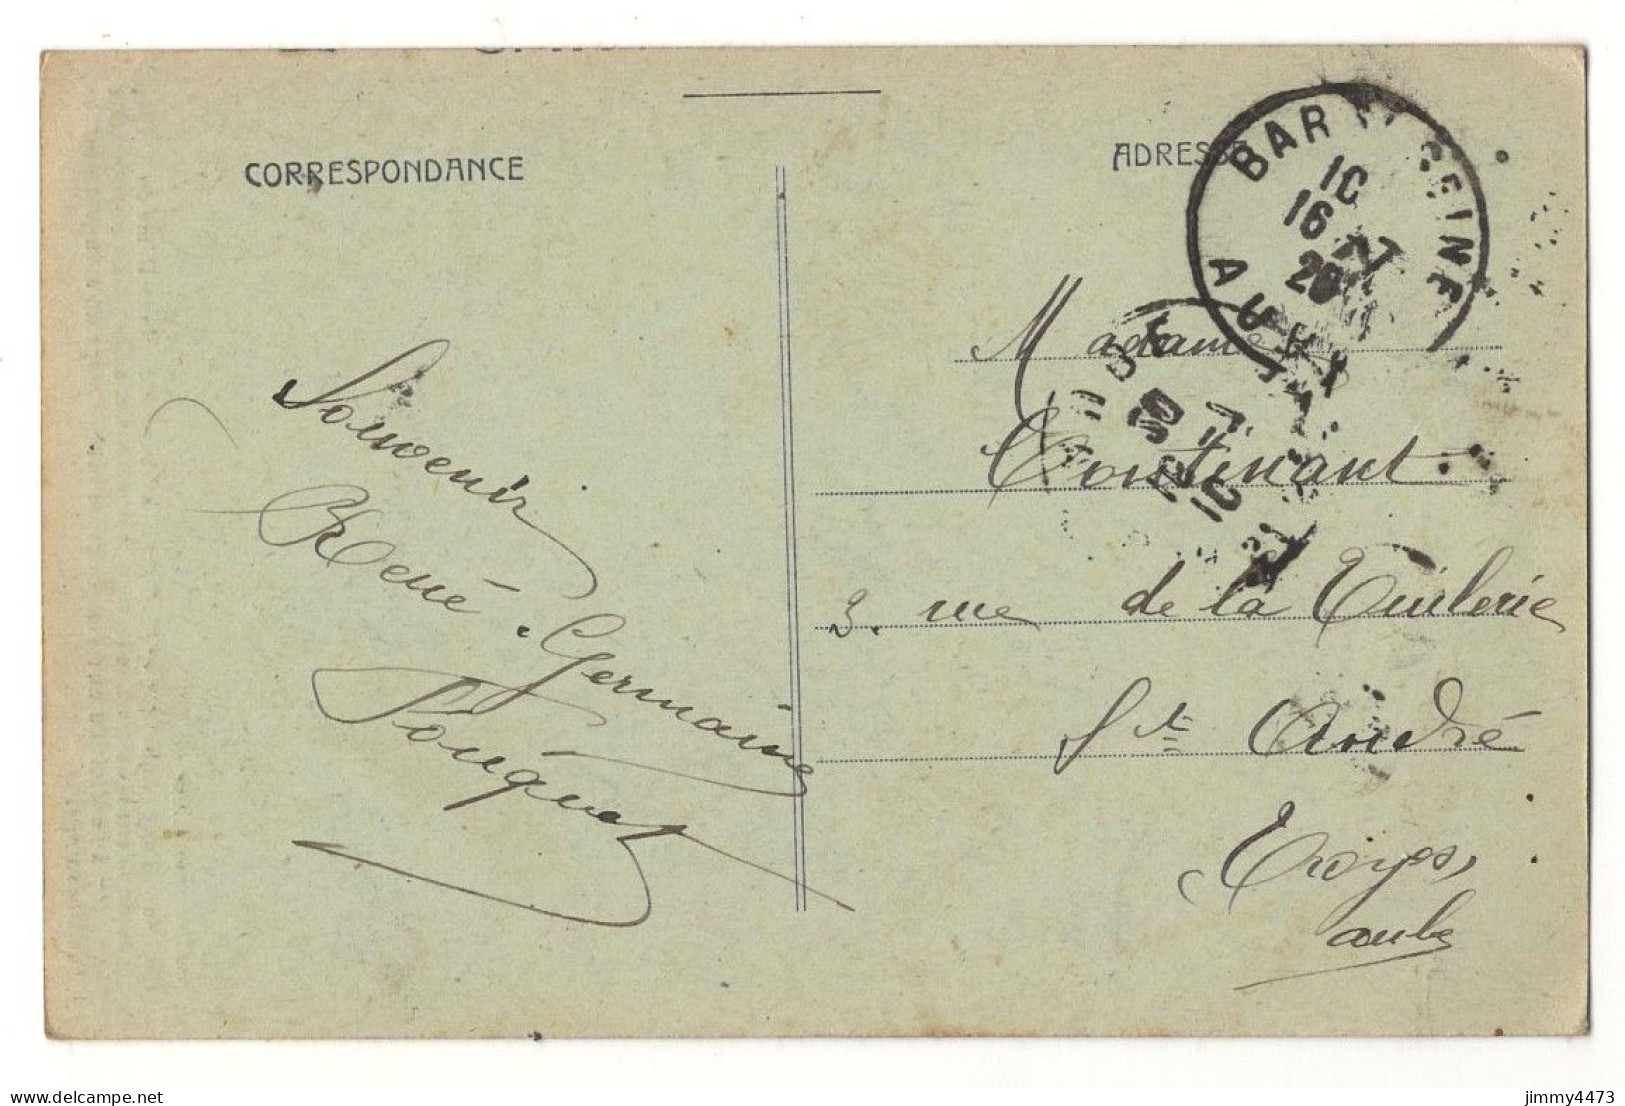 CORRESPONDANCE
ADRESSE
BAR SEINE
AUBE
10
16 - 7
20
Souvenir
René. Germaine
Fouquet
Madame
Contenant.
3. rue de la Tuilerie
Ste André
Troyes,
aube
delcampe.net
jimmy4473